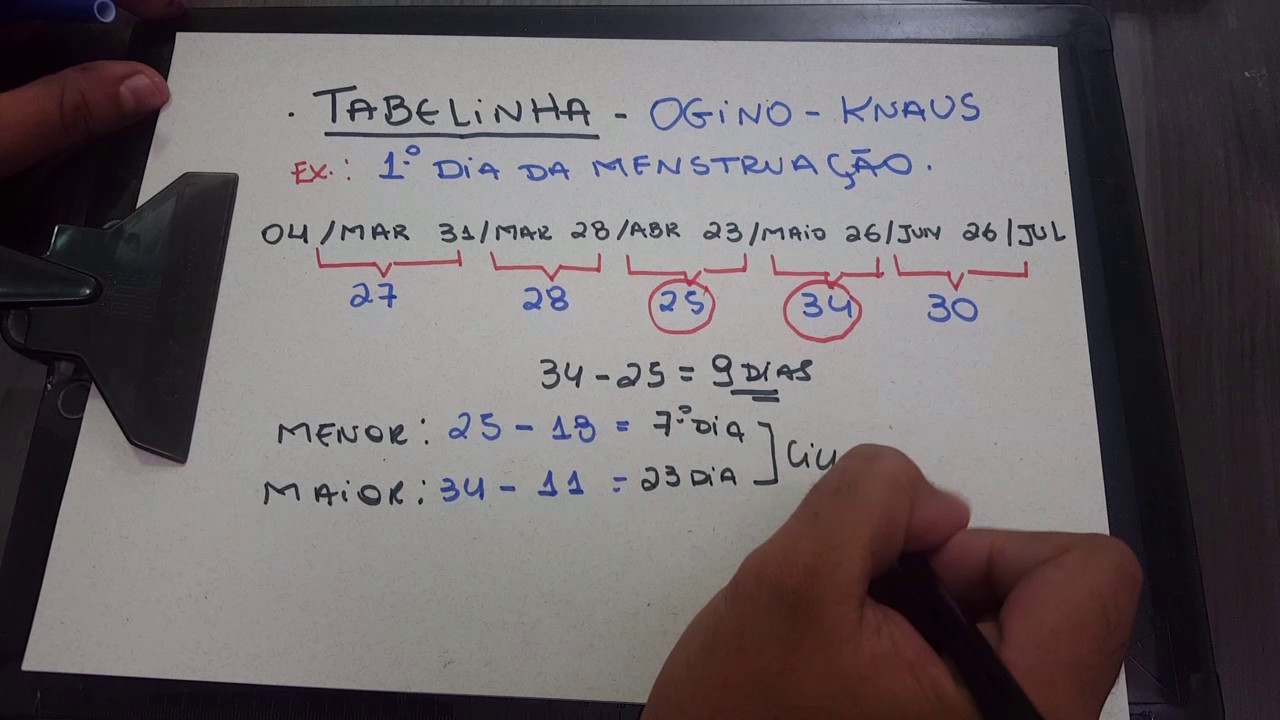 . TABELINHA - OGINO - KNAUS
EX.: 1.º DIA DA MENSTRUAÇÃO.
04/MAR 31/MAR 28/ABR 23/MAIO 26/JUN 26/JUL
27 28 25 34 30
34 - 25 = 9 DIAS
MENOR: 25 - 18 = 7º DIA
MAIOR: 34 - 11 = 23 DIA